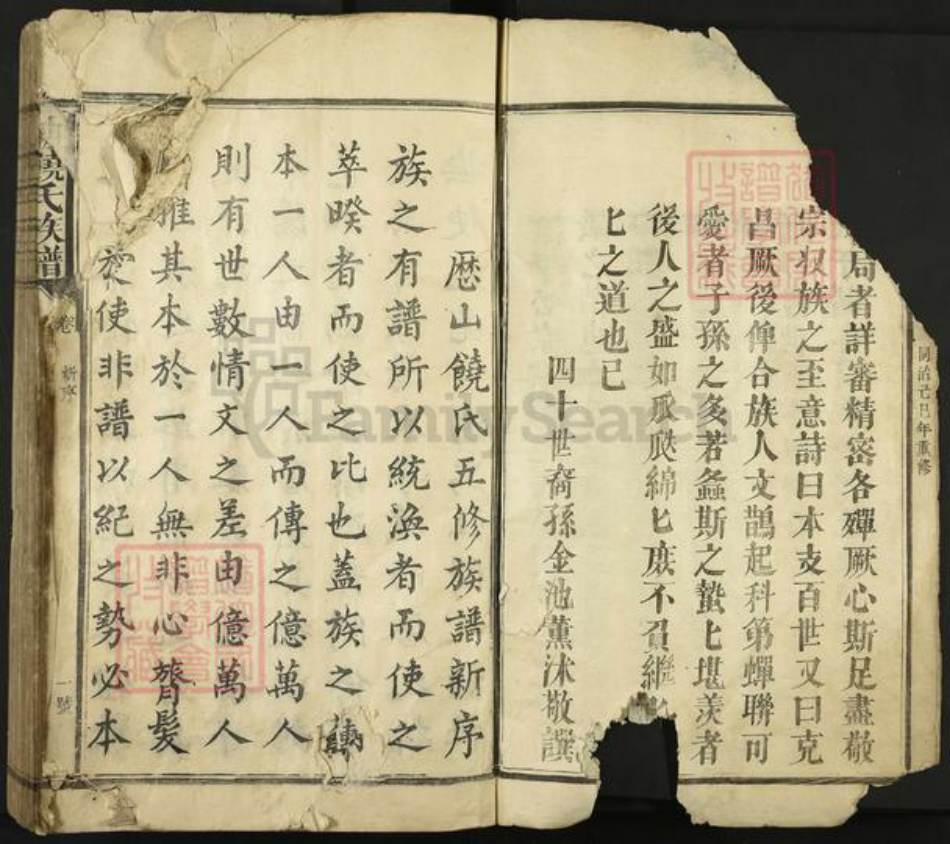 同治己巳年重修
局者詳審精密各殫厥心斯足盡敬
宗收族之至意詩曰本支百世又曰克
昌厥後俾合族人文鵲起科第蟬聯可
愛者子孫之多若螽斯之蟄匕堪羡者
後人之盛如瓜瓞綿匕庶不負繼
匕之道也已
四十世裔孫金池薰沐敬譔
歷山饒氏五修族譜新序
族之有譜所以統渙者而使之
萃暌者而使之比也蓋族之
本一人由一人而傳之億萬人
則有世數情文之差由億萬人
推其本於一人無非心膂髮
使非譜以紀之勢必本
饒氏族譜
卷 新序 一號
FamilySearch